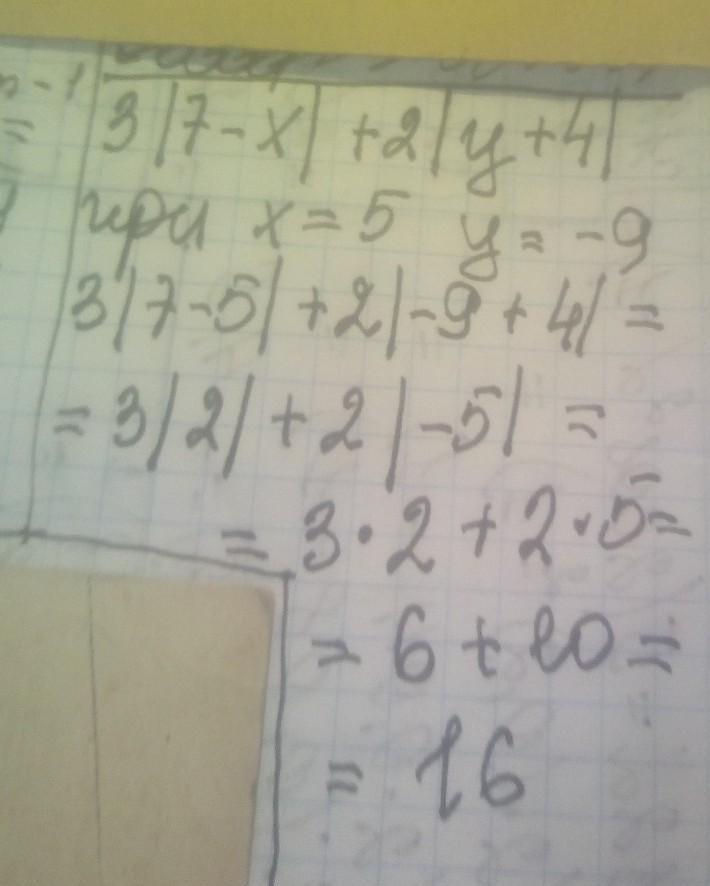 n-1
=
3|7-x| +2|y+4|
при x=5 y=-9
3|7-5|+2|-9+4|=
=3|2|+2|-5|=
=3·2+2·5=
=6+10=
=16